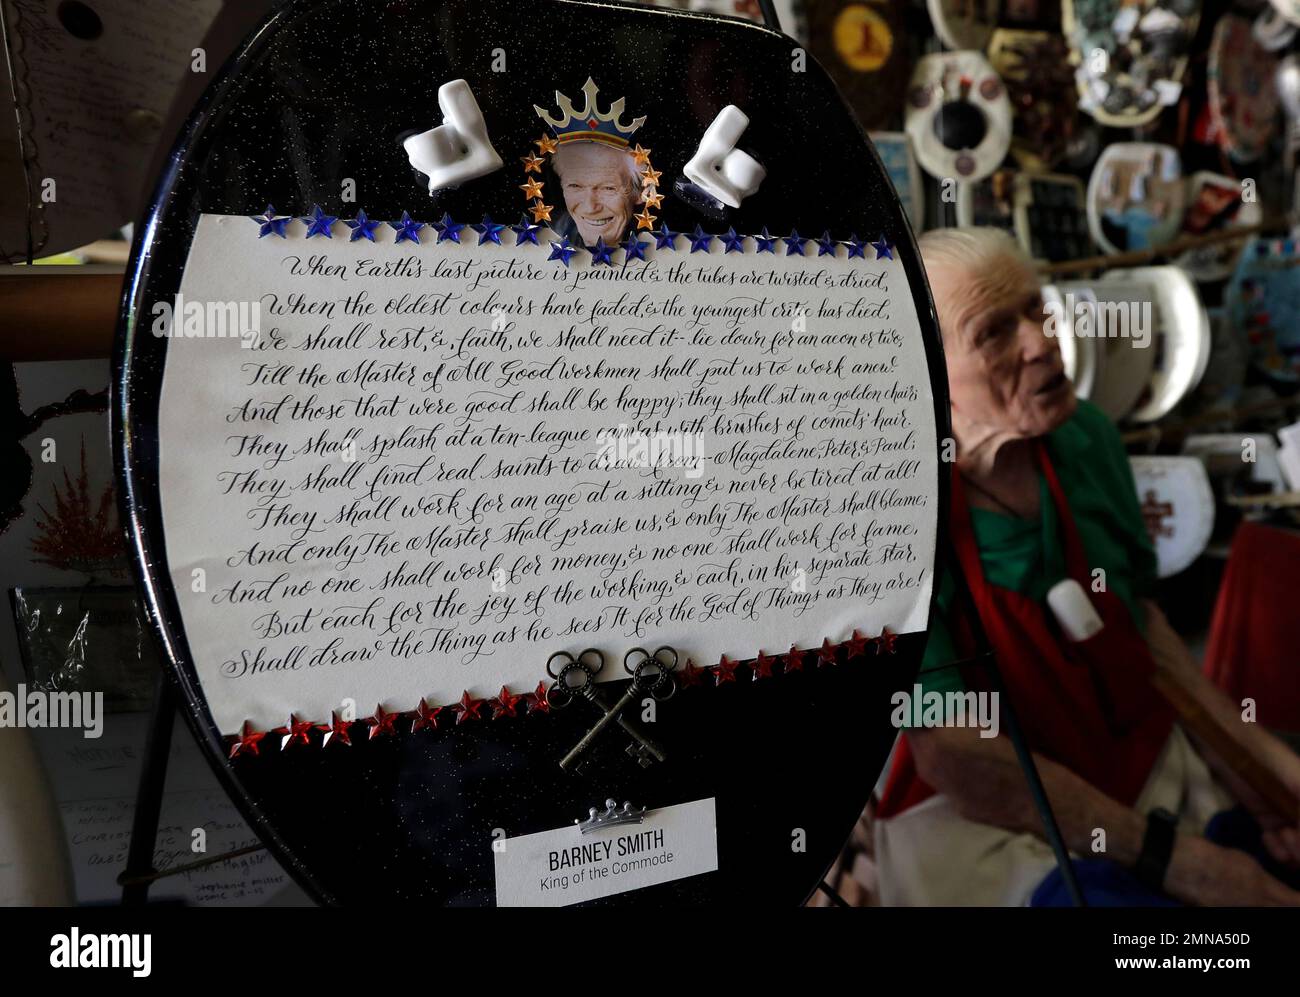 When Earth's last picture is painted & the tubes are twisted & dried,
When the oldest colours have faded, & the youngest critic has died,
We shall rest, &, faith, we shall need it-- lie down for an aeon or two,
Till the Master of All Good Workmen shall put us to work anew!
And those that were good shall be happy; they shall sit in a golden chair;
They shall splash at a ten-league canvas with brushes of comets' hair.
They shall find real saints to draw from-- Magdalene, Peter & Paul;
They shall work for an age at a sitting & never be tired at all!
And only The Master shall praise us, & only The Master shall blame;
And no one shall work for money, & no one shall work for fame,
But each for the joy of the working, & each, in his separate star,
Shall draw the Thing as he sees It for the God of Things as They are!
BARNEY SMITH
King of the Commode
NOTICE
alamy
Image ID: 2MNA50D
www.alamy.com